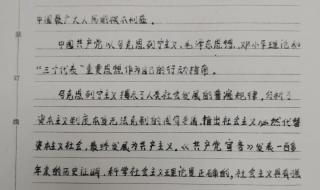 中国最广大人民的根本利益。
中国共产党以马克思列宁主义、毛泽东思想、邓小平理论和
“三个代表”重要思想作为自己的行动指南。
马克思列宁主义揭示了人类社会发展的普遍规律，分析了
资本主义制度本身无法克制的固有矛盾，指出社会主义必然代替
资本主义社会，最终发展为共产主义。《共产党宣言》发表一百多
年来的历史证明，科学社会主义理论是正确的，社会主义具有强